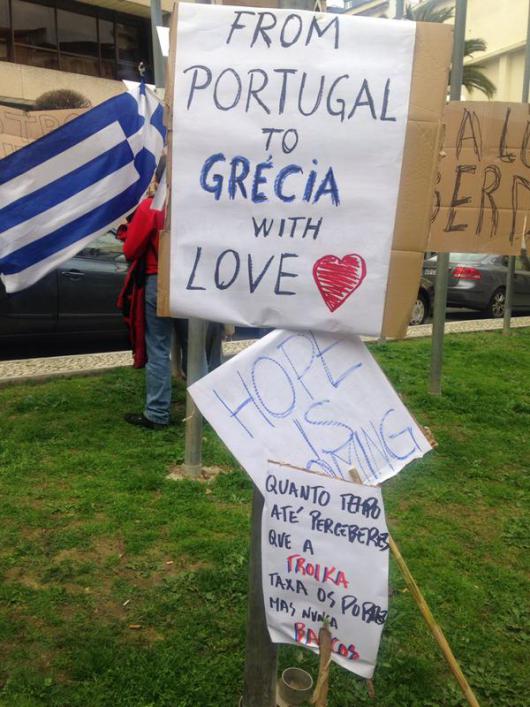 FROM
PORTUGAL
TO
GRÉCIA
WITH
LOVE
HOPE
IS
COMING
QUANTO TEMPO
ATÉ PERCEBERES
QUE A
TROIKA
TAXA OS POBRES
MAS NUNCA
BANCOS
A LA
BERN